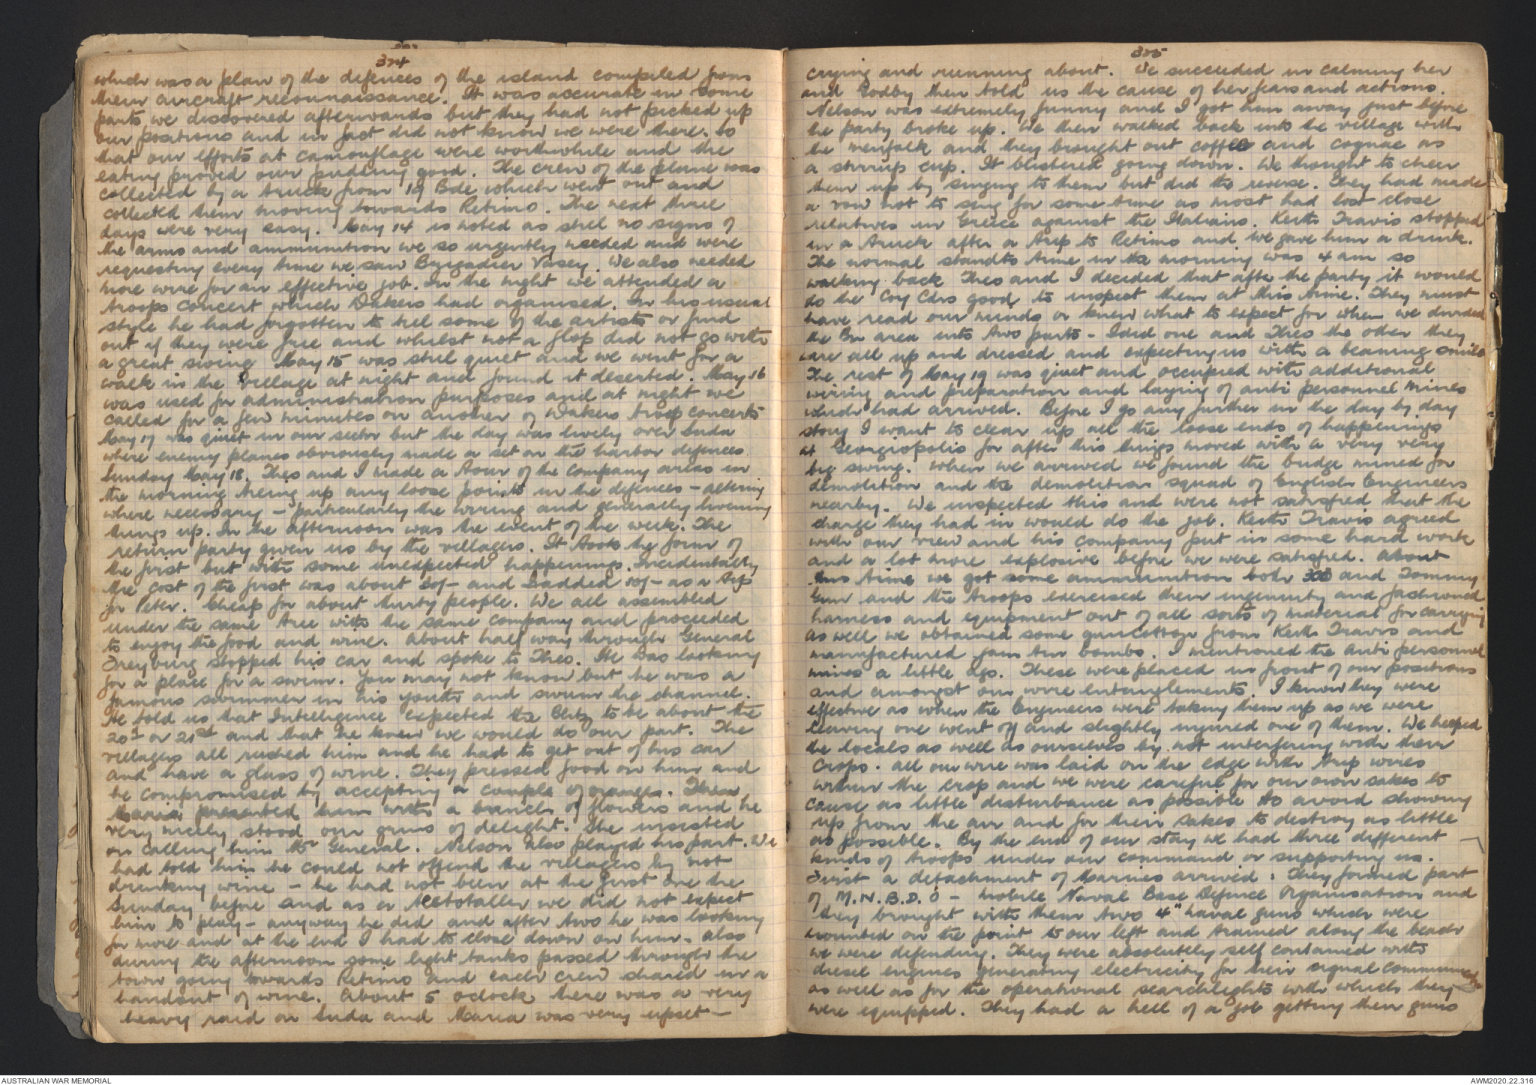 324
which was a plan of the defences of the island compiled from
their aircraft reconnaissance. It was accurate in some
parts we discovered afterwards but they had not picked up
our positions and in fact did not know we were there. So
that our efforts at camouflage were worthwhile and the
eating proved our pudding good. The crew of the plane was
collected by a truck from 19 Bde which went out and
collected them moving towards Retimo. The next three
days were very easy. May 14 is noted as still no signs of
the arms and ammunition we so urgently needed and were
requesting every time we saw Brigadier Vasey. We also needed
more wire for an effective job. In the night we attended a
troops concert which Dakers had organised. In his usual
style he had forgotten to tell some of the artists or find
out if they were free and whilst not a flop did not go with
a great swing. May 15 was still quiet and we went for a
walk in the village at night and found it deserted. May 16
was used for administration purposes and at night we
called for a few minutes on another of Dakers troop concerts
May 17 was quiet in our sector but the day was lively over Suda
where enemy planes obviously made a set on the harbor defences.
Sunday May 18. Theo and I made a tour of the company areas in
the morning tieing up any loose points in the defences - altering
where necessary - particularly the wiring and generally livening
things up. In the afternoon was the event of the week. The
return party given us by the villagers. It took the form of
the first but with some unexpected happenings. Incidentally
the cost of the first was about 30/- and I added 10/- as a tip
for Peter. Cheap for about thirty people. We all assembled
under the same tree with the same company and proceeded
to enjoy the food and wine. About half way through General
Freyburg stopped his car and spoke to Theo. He was looking
for a place for a swim. You may not know but he was a
famous swimmer in his youth and swum the channel.
He told us that Intelligence expected the Blitz to be about the
20th or 21st and that he knew we would do our part. The
villagers all rushed him and he had to get out of his car
and have a glass of wine. They pressed food on him and
he compromised by accepting a couple of oranges. Then
Maria presented him with a branch of flowers and he
very nicely stood our grins of delight. She insisted
on calling him Mr General. Nelson also played his part. We
had told him he could not offend the villagers by not
drinking wine - he had not been at the first one the
Sunday before and as a teetotaller we did not expect
him to play - anyway he did and after two he was looking
for more and at the end I had to close down on him. Also
during the afternoon some light tanks passed through the
town going towards Retimo and each crew shared in a
handout of wine. About 5 oclock there was a very
heavy raid on Suda and Maria was very upset -
325
crying and running about. We succeeded in calming her
and Godby then told us the cause of her fears and actions.
Nelson was extremely funny and I got him away just before
the party broke up. We then walked back into the village with
the menfolk and they brought out coffee and cognac as
a stirrup cup. It blistered going down. We thought to cheer
them up by singing to them but did the reverse. They had made
a vow not to sing for some time as most had lost close
relatives in Greece against the Italians. Keith Travis stopped
in a truck after a trip to Retimo and we gave him a drink.
The normal standto time in the morning was 4 am so
walking back Theo and I decided that after the party it would
do the Coy Cdrs good to inspect them at this time. They must
have read our minds or knew what to expect for when we divided
the Bn area into two parts - I did one and Theo the other they
were all up and dressed and expecting us with a beaming smile
The rest of May 19 was quiet and occupied with additional
wiring and preparation and laying of anti personnel mines
which had arrived. Before I go any further in the day by day
story I want to clear up all the loose ends of happenings
at Georgiopolis for after this things moved with a very very
big swing. When we arrived we found the bridge mined for
demolition and the demolition squad of English Engineers
nearby. We inspected this and were not satisfied that the
charge they had in would do the job. Keith Travis agreed
with our view and his company put in some hard work
and a lot more explosive before we were satisfied. About
this time we got some ammunition both 303 and Tommy
Gun and the troops exercised their ingenuity and fashioned
harness and equipment out of all sorts of material for carrying
As well we obtained some guncotton from Keith Travis and
manufactured jam tin bombs. I mentioned the anti personnel
mines a little ago. These were placed in front of our positions
and amongst our wire entanglements. I know they were
effective as when the Engineers were taking them up as we were
leaving one went off and slightly injured one of them. We helped
the locals as well as ourselves by not interfering with their
crops. All our wire was laid on the edge with trip wires
within the crop and we were careful for our own sakes to
cause as little disturbance as possible to avoid showing
up from the air and for their sakes to destroy as little
as possible. By the end of our stay we had three different
kinds of troops under our command or supporting us.
First a detachment of Marines arrived. They formed part
of M.N.B.D.O - Mobile Naval Base Defence Organisation and
they brought with them two 4" naval guns which were
mounted on the point to our left and trained along the beach
we were defending. They were absolutely self contained with
diesel engines generating electricity for their signal communications
as well as for the operational searchlights with which they
were equipped. They had a hell of a job getting their guns
AUSTRALIAN WAR MEMORIAL
AWM2020.22.316